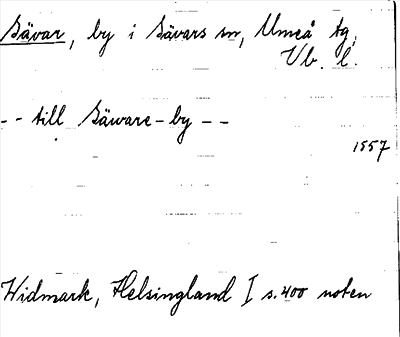 Sävar, by i Sävars sn, Umeå tg,
Vb. l.
- - till Säware-by - -
1557
Widmark, Helsingland I s. 400 noten